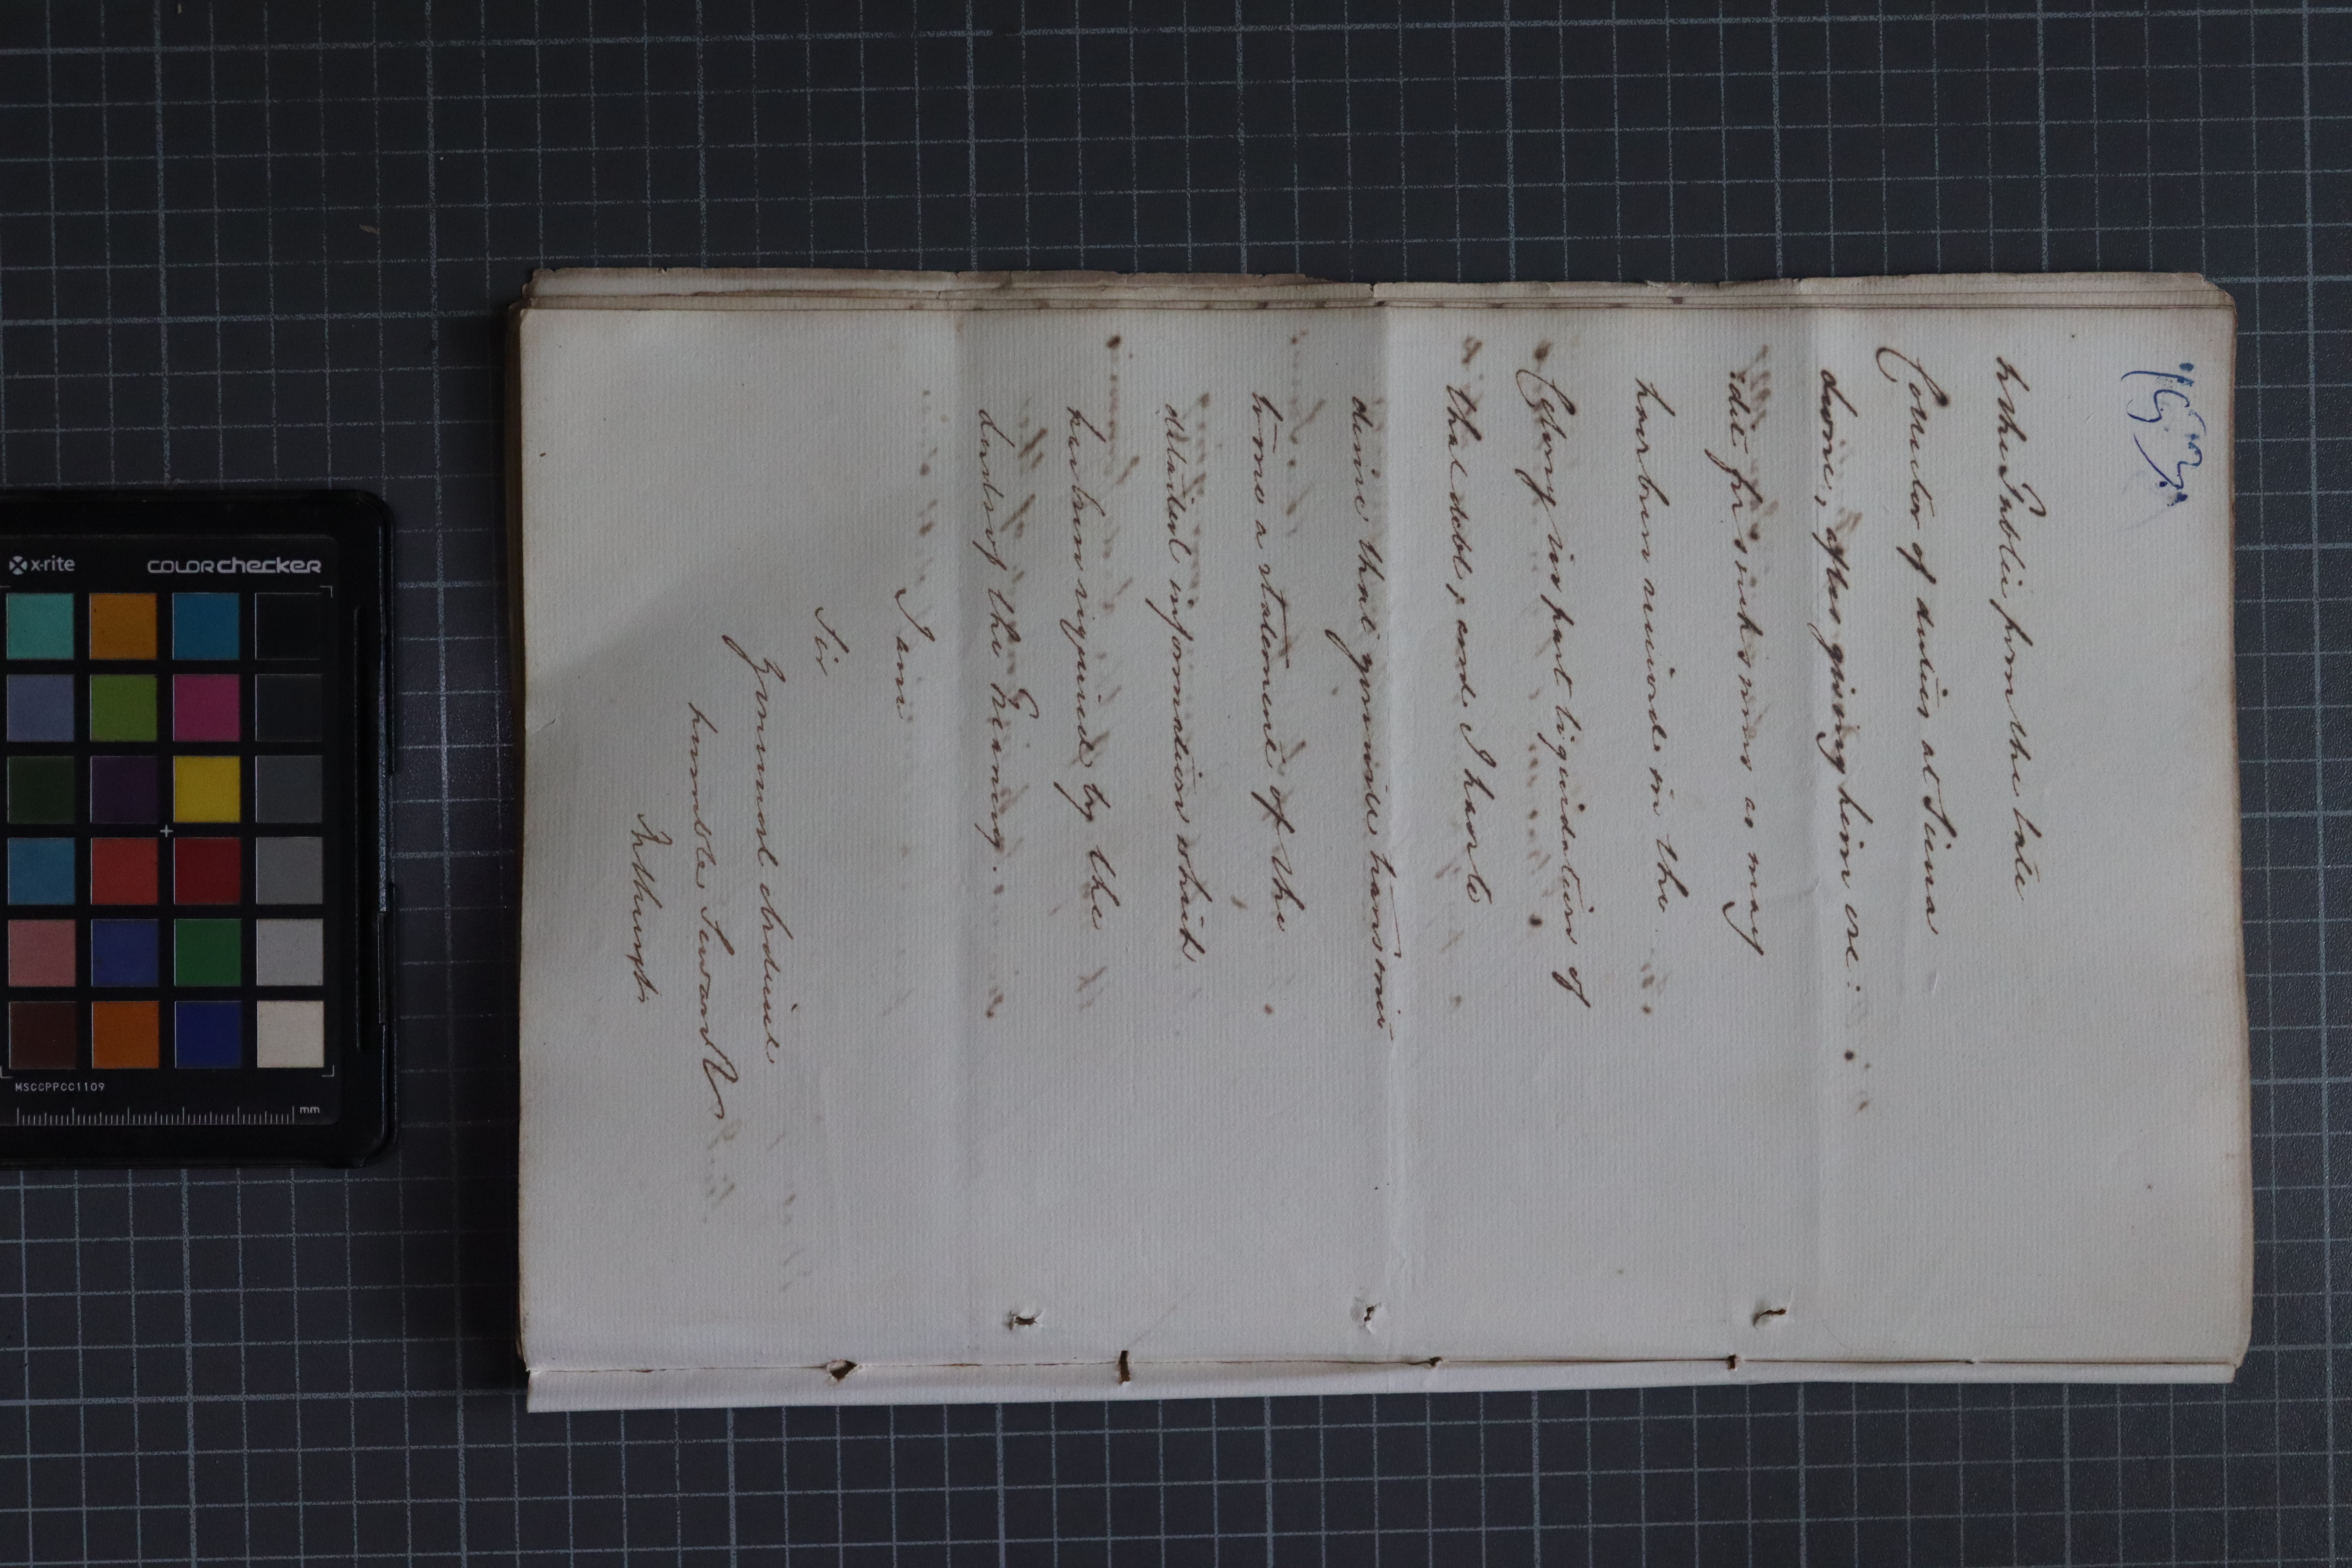 163.
to the Public from the late
Collector of duties at Sierra
Leone, after giving him cre:
:dit for such sums as may
have been received in the
Colony in part liquidation of
that debt, and I have to
desire that you will transmit
home a statement of the
detailed information which
has been required by the
Lords of the Treasury.
I am
Sir
Your most obedient
humble Servant
Bathurst
x-rite
COLORchecker
MSCCPPCC1109
mm